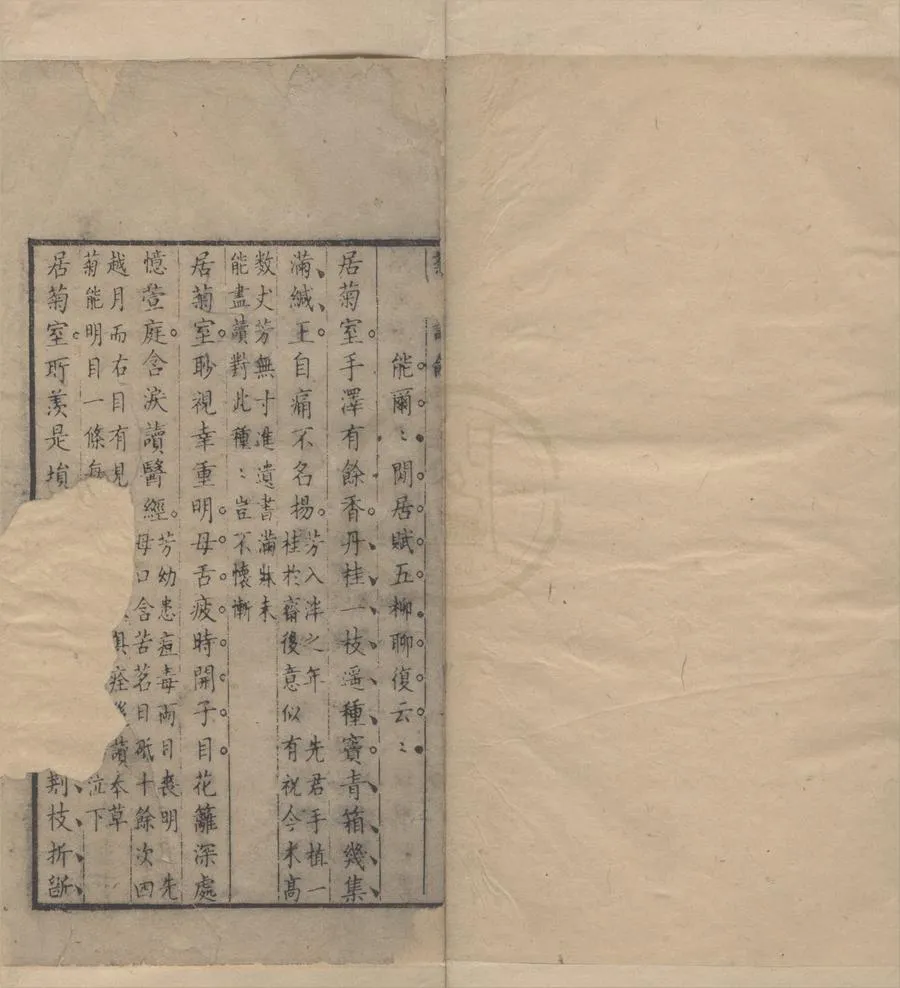 能爾〻閒居賦五柳聊復云〻
居菊室手澤有餘香丹桂一枝遥種寳青箱幾集
滿緘王自痛不名揚芳入泮之年先君手植一
桂於齋後意似有祝今未髙
数丈芳無寸進遺書滿牀未
能盡讀對此種〻豈不懷慚
居菊室眇視幸重明母舌疲時開子目花籬深處
憶萱庭含淚讀醫經芳幼患痘毒兩目喪明先
母口含苦茗日舐十餘次四
越月而右目有見
俱痊後讀本草
菊能明目一條每
泣下
居菊室所羡是塤
荆枝折斷